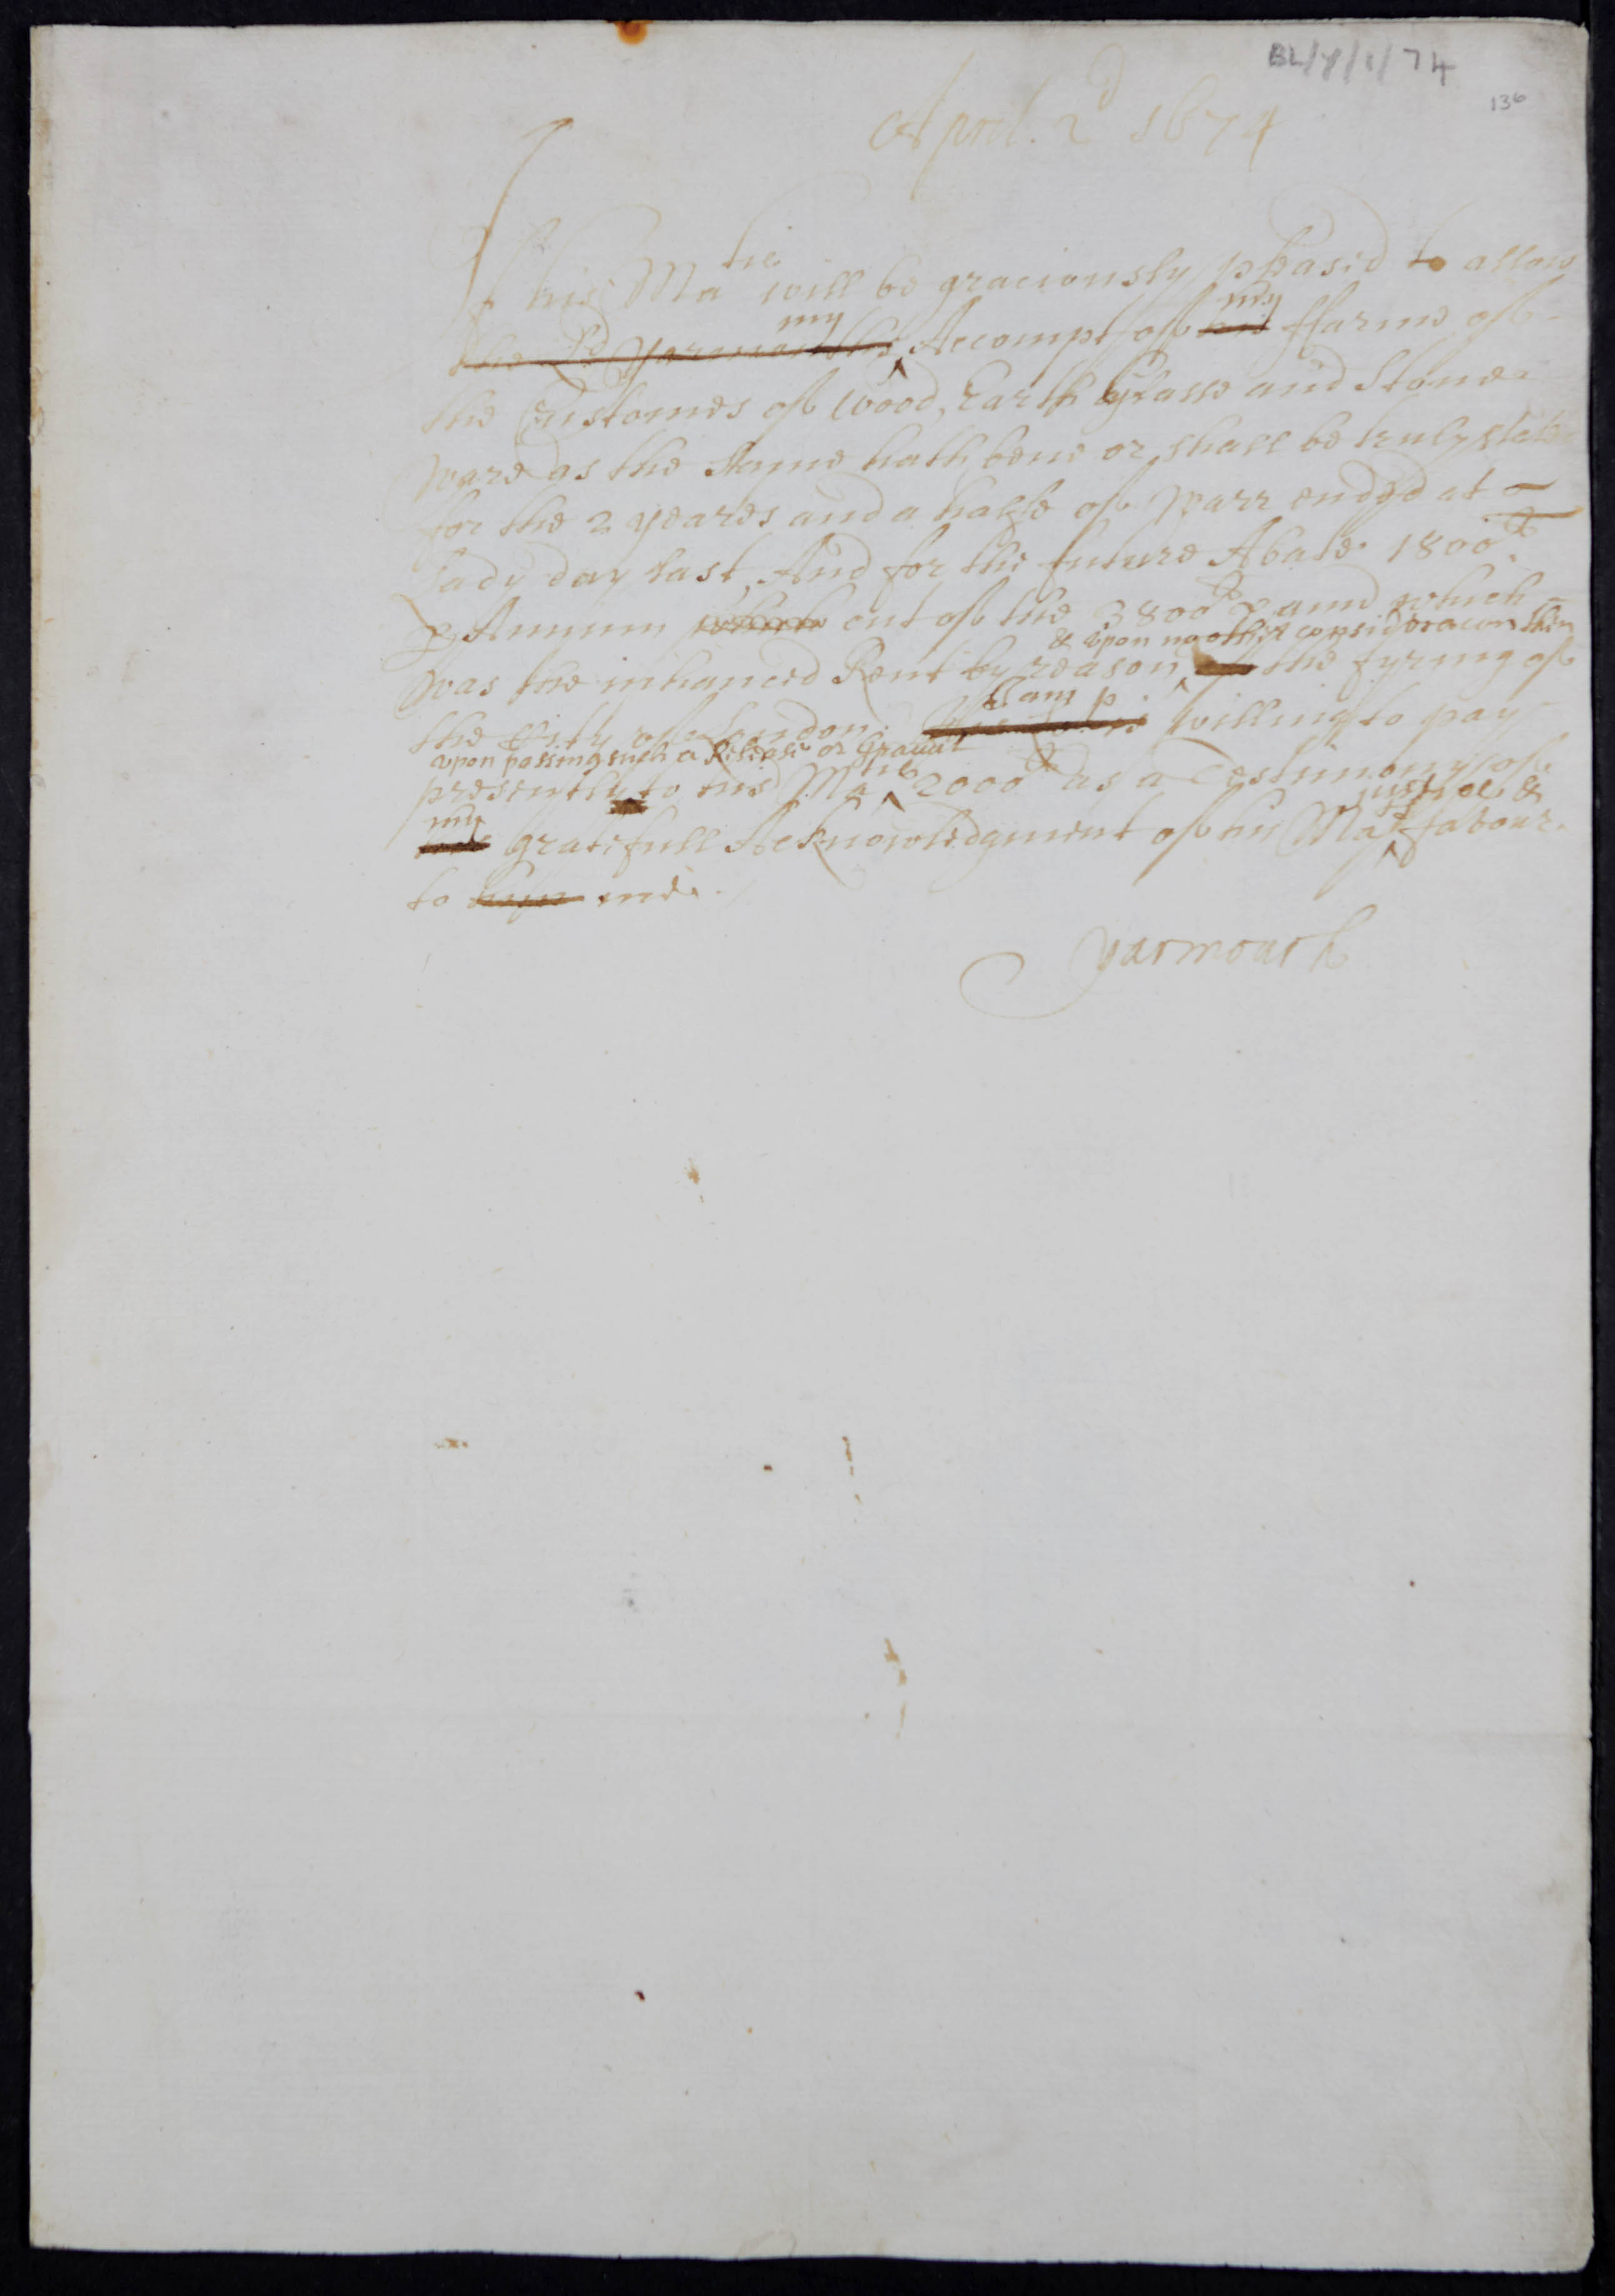 BL/Y/1/74
136
April. 2d 1674
If his Matie will be graciously pleased to allow
the Ld Yarmouths my Accompt of his my ffarme of
the Customes of Wood, Earth Glasse and Stone
ware as the same hath bene or shall be truly stated
for the 2 yeares and a halfe of Warr ended at
Lady day last, And for the future Abate 1800l
p Annum which out of the 3800l p annu which
& upon no other consideracon then
was the inhanced Rent by reason the fyring of
I am
the City of London. willing to pay
upon passing such a Release or Graunt
presently to his Matie 2000l as a Testimony of
my justice &
gratefull Acknowledgment of his Mats favour
to me.
Yarmouth